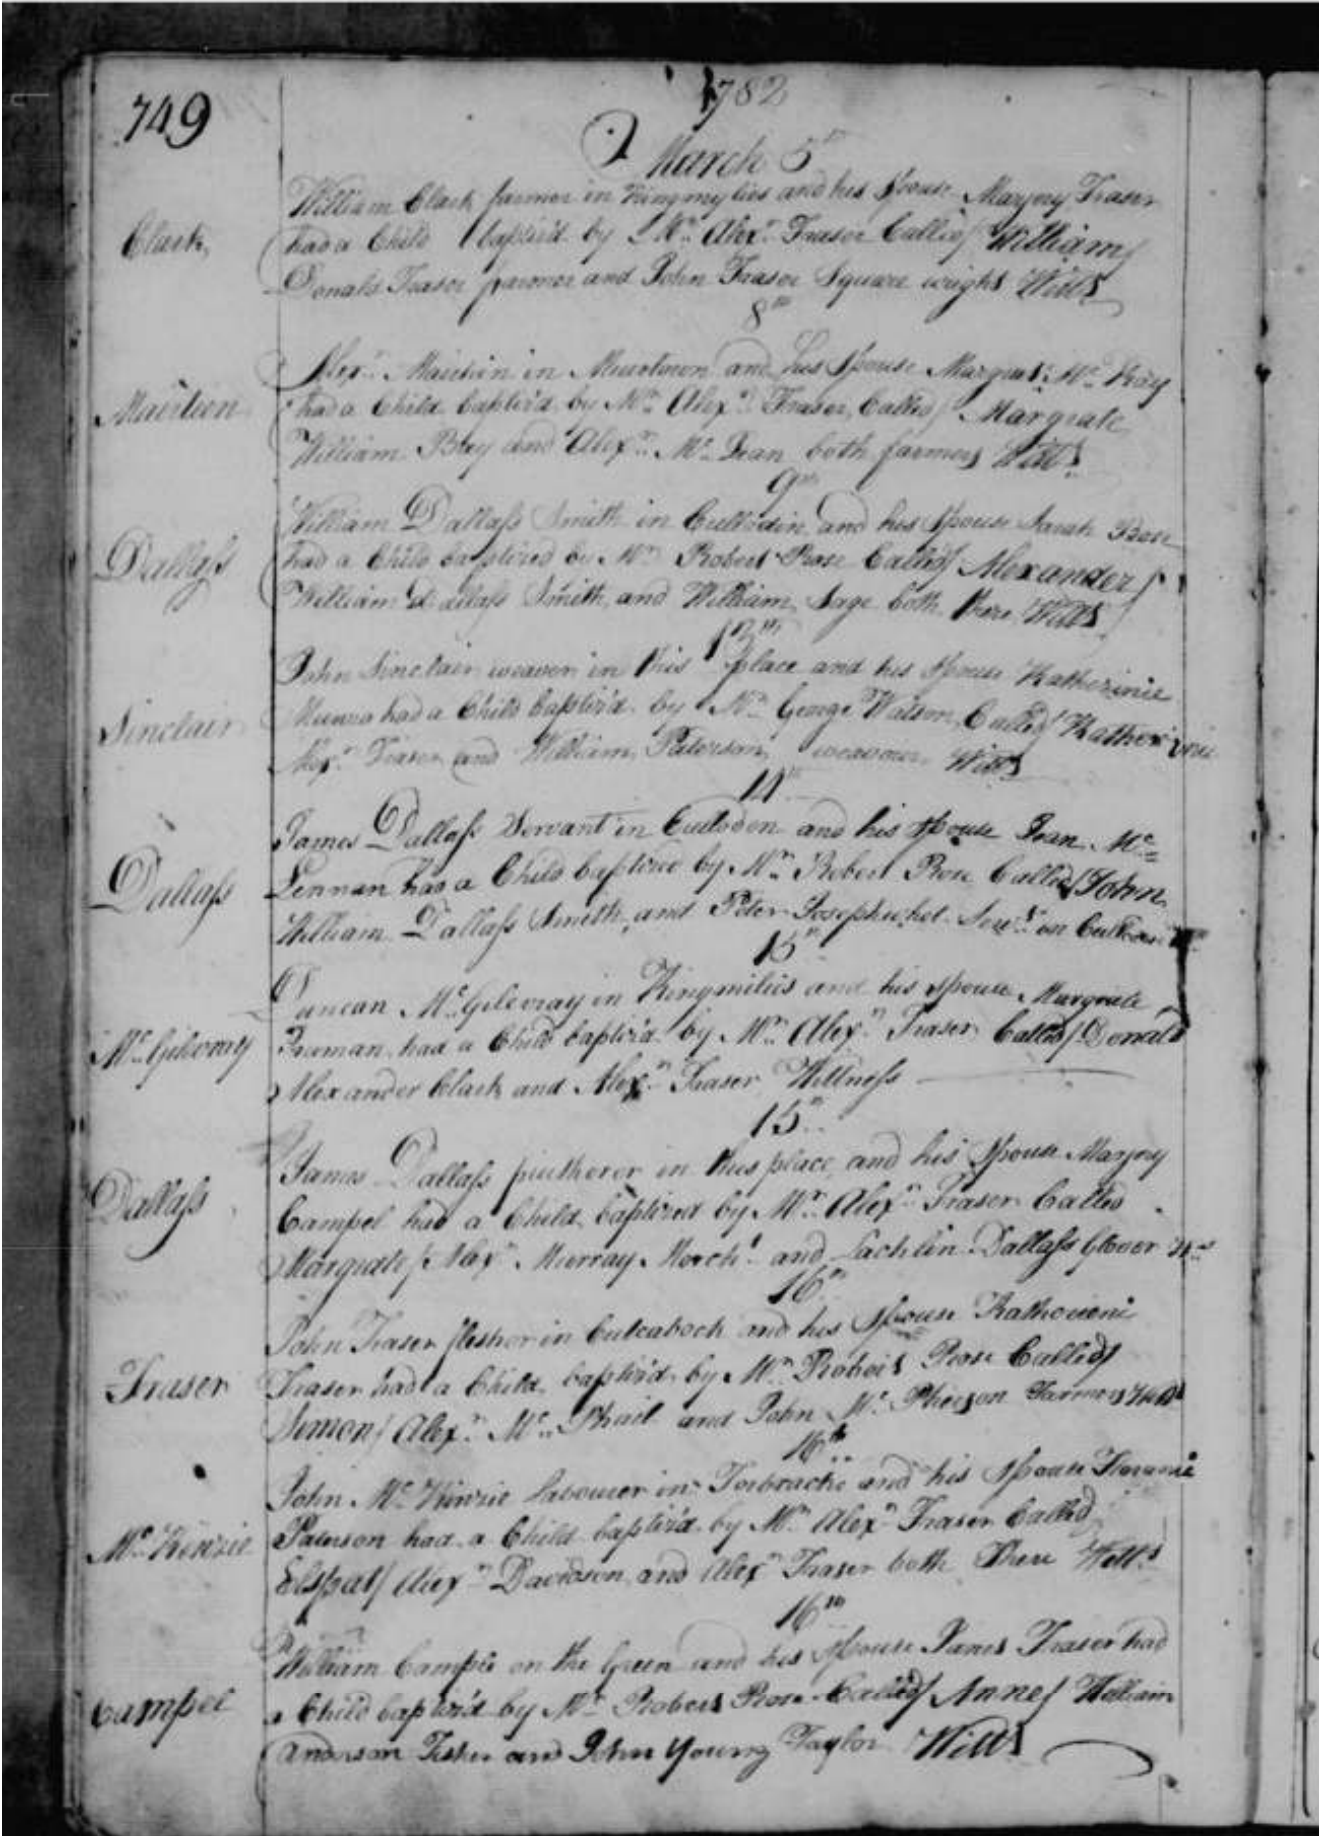 749
1782
March 5th
Clark
William Clark farmer in Kingmylies and his Spouse Marjory Fraser
had a Child baptiz'd by Mr. Alexr. Fraser Called/ William/
Donald Fraser farmer and John Fraser Square wright Witts
8th
Alexr. in Muirtown and his Spouse Margrat Mc.
had a Child baptiz'd by Mr. Alexr. Fraser Called/ Margrate
William Bey and Alexr. Mc. Lean both farmers Witts
9th
Dallass
William Dallass Smith in Cullodin and his Spouse Sarah Rose
had a Child baptized by Mr. Robert Rose Called/ Alexander/
William Dallass Smith, and William Sage both there Witts
Sinclair
John Sinclair weaver in this place and his Spouse Katherinie
Munro had a Child baptiz'd by Mr. George Watson, Called/ Katherinie
Alexr. Fraser and William Paterson, weavour Witts
14th
Dallass
James Dallass Servant in Culodon and his Spouse Jean Mc=
Lennan had a Child baptized by Mr. Robert Rose Called/ John
William Dallass Smith, and Peter Servt. in
15th
Mc. Gilvray
Duncan Mc. Gilevray in Kingmilies and his Spouse Margrate
Fruman had a Child baptiz'd by Mr. Alexr. Fraser Called/ Donald
Alexander Clark and Alexr. Fraser Wittness
15th
Dallass
James Dallass piutherer in this place, and his Spouse Marjory
Campel had a Child baptized by Mr. Alexr. Fraser Called
Margrate/ Alexr. Murray Morcht. and Lachlin Dallass Glover
16th
Fraser
John Fraser flesher in Culcaboch and his Spouse
Fraser had a Child baptiz'd by Mr. Robert Rose Called/
Semon/ Alexr. Mc. Phail and John Mc. Pherson Farmers Witts
16th
Mc. Kinzie
John Mc. Kinzie Labourer in and his Spouse
Paterson had a Child baptiz'd by Mr. Alexr. Fraser Called
Elspat/ Alexr. Davidson and Alexr. Fraser both there Witts
16th
Campel
William Campel on the Green and his Spouse Fraser had
a Child baptiz'd by Mr. Robert Rose Called/ Anne/ William
Anderson Fisher and John Young Taylor Witts